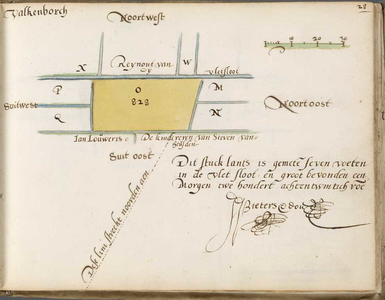 Valkenborch
Noort west
28
10 20 30
X
Reÿnout van
W
vlietsloot
P
O
828
M
Suitwest
Q
N
Noort oost
Jan Louweris
De kinderen van Sieven van
Suit oost
Dit stuck lants is gemeten seven voeten
in de vliet sloot en groot bevonden een
Morgen twe hondert achtentwintich voe
Dese lini streckt noorden aen